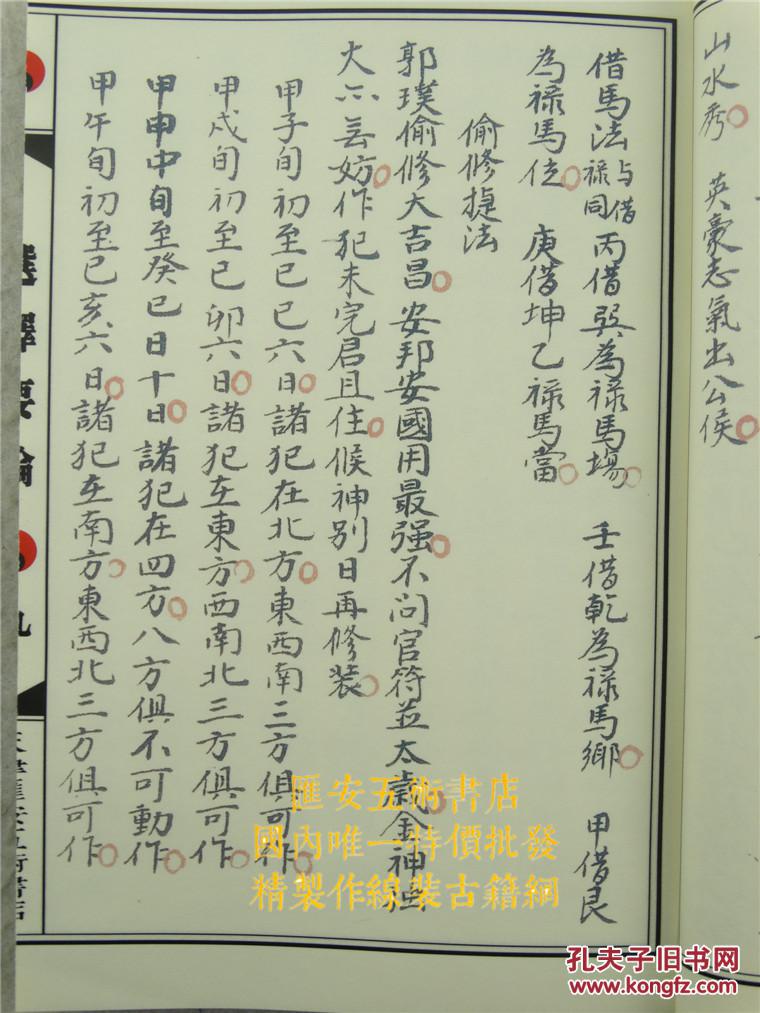 山水秀 英豪志氣出公侯
借馬法與借祿同 丙借巽為祿馬場 壬借乾為祿馬鄉 甲借艮
為祿馬位 庚借坤乙祿馬當
偷修捷法
郭璞偷修大吉昌 安邦安國用最强 不问官符並太歲 金神
火亦無妨 作犯未完君且住 候神别日再修装
甲子旬初至己巳六日 諸犯在北方 東西南三方俱可作
甲戌旬初至己卯六日 諸犯在東方 西南北三方俱可作
甲申中旬至癸巳日十日 諸犯在四方 八方俱不可動作
甲午旬初至己亥六日 諸犯在南方 東西北三方俱可作
選擇要論
九
匯安五術書店
國內唯一特價批發
精製作線装古籍網
孔夫子旧书网
www.kongfz.com